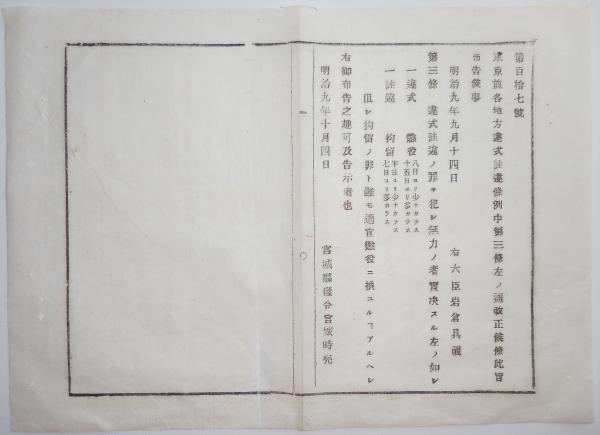 第百拾七號
東京竝各地方違式詿違條例中第三條左ノ通改正候條此旨
布告候事
明治九年九月十四日
右大臣岩倉具視
第三條 違式詿違ノ罪ヲ犯シ無力ノ者實決スル左ノ如シ
一違式 懲役 八日ヨリ少ナカラス 十五日ヨリ多カラス
一詿違 拘留 半日ヨリ少ナカラス 七日ヨリ多カラス
但シ拘留ノ罪ト雖モ適宜懲役ニ換ユルヿアルヘシ
右御布告之趣可及告示者也
明治九年十月四日
宮城縣權令宮城時亮